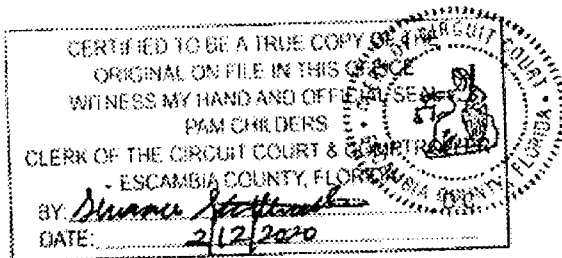 CERTIFIED TO BE A TRUE COPY OF THE
ORIGINAL ON FILE IN THIS OFFICE
WITNESS MY HAND AND OFFICIAL SEAL
PAM CHILDERS
CLERK OF THE CIRCUIT COURT & COMPTROLLER
ESCAMBIA COUNTY, FLORIDA
BY:
DATE: 2/12/2020
CIRCUIT COURT
COUNTY, FLORIDA